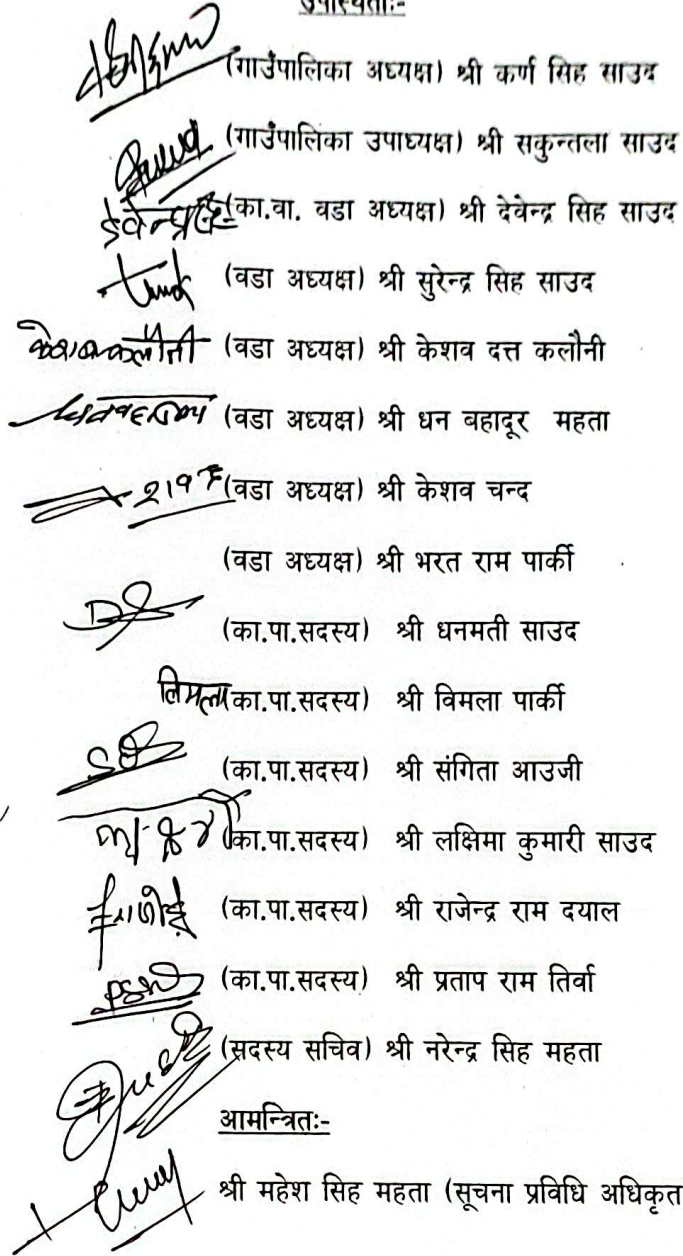 उपस्थिताः-
(गाउँपालिका अध्यक्ष) श्री कर्ण सिह साउद
(गाउँपालिका उपाध्यक्ष) श्री सकुन्तला साउद
(का.वा. वडा अध्यक्ष) श्री देवेन्द्र सिह साउद
(वडा अध्यक्ष) श्री सुरेन्द्र सिंह साउद
(वडा अध्यक्ष) श्री केशव दत्त कलौनी
(वडा अध्यक्ष) श्री धन बहादूर महता
(वडा अध्यक्ष) श्री केशव चन्द
(वडा अध्यक्ष) श्री भरत राम पार्की
(का.पा.सदस्य) श्री धनमती साउद
(का.पा.सदस्य) श्री विमला पार्की
(का.पा.सदस्य) श्री संगिता आउजी
(का.पा.सदस्य) श्री लक्षिमा कुमारी साउद
(का.पा.सदस्य) श्री राजेन्द्र राम दयाल
(का.पा.सदस्य) श्री प्रताप राम तिर्वा
(सदस्य सचिव) श्री नरेन्द्र सिंह महता
आमन्त्रितः-
श्री महेश सिंह महता (सूचना प्रविधि अधिकृत